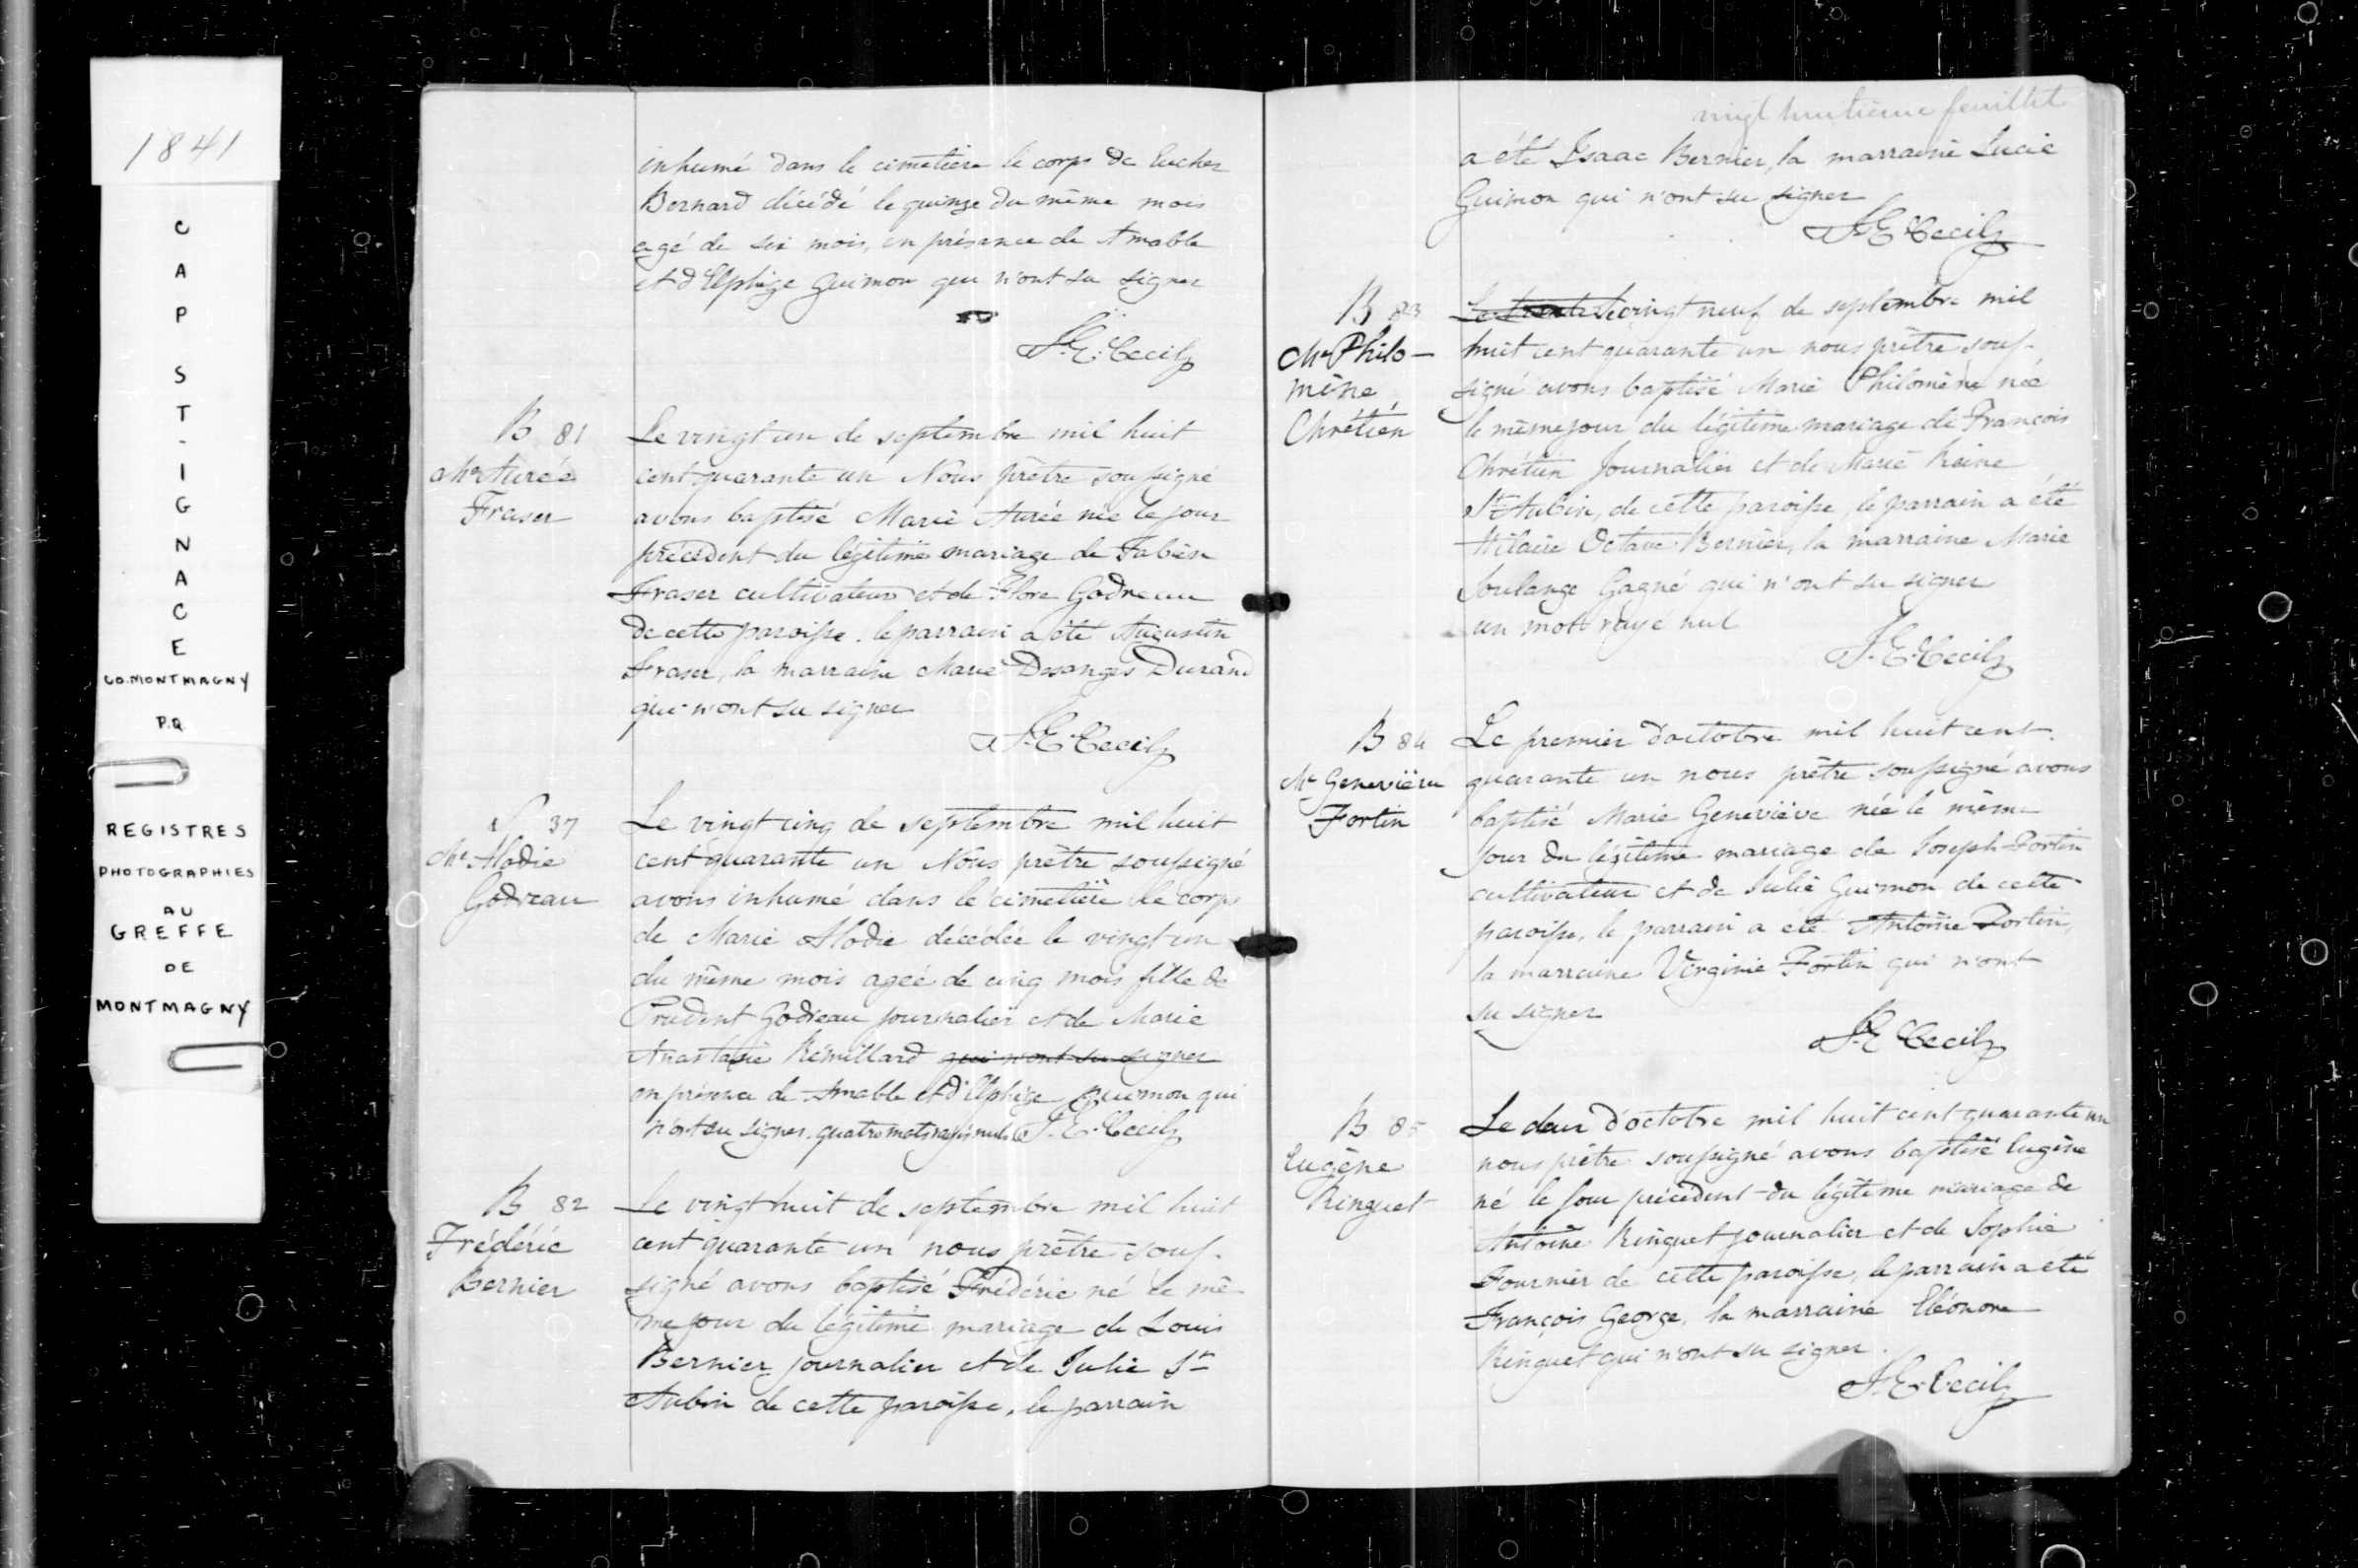 1841
CAP ST-IGNACE
CO. MONTMAGNY
P.Q.
REGISTRES
PHOTOGRAPHIES
AU
GREFFE
DE
MONTMAGNY
inhumé dans le cimetière le corps de Eucher
Bernard décédé le quinze du même mois
agé de six mois, en présence de Amable
et d'Elphége Guimon qui n'ont su signer
J. E. Cecil
B 81
Me Aurée
Fraser
Le vingt un de septembre mil huit
cent quarante un Nous prêtre soussigné
avons baptisé Marie Aurée née le jour
précédent du légitime mariage de Fabien
Fraser cultivateur et de Flore Godreau
de cette paroisse. le parrain a été Augustin
Fraser, la marraine Marie Desanges Durand
qui n'ont su signer
J. E. Cecil
S 37
Me Alodie
Godreau
Le vingt cinq de septembre mil huit
cent quarante un Nous prêtre soussigné
avons inhumé dans le cimetière le corps
de Marie Alodie décédée le vingt un
du même mois agée de cinq mois fille de
Prudent Godreau journalier et de Marie
Anastasie Rémillard qui n'ont su signer
en présence de Amable et d'Elphége Guimon qui
n'ont su signer. quatre mots rayés nuls J. E. Cecil
B 82
Frédéric
Bernier
Le vingt huit de septembre mil huit
cent quarante un nous prêtre sous-
signé avons baptisé Frédéric né le mê-
me jour du légitime mariage de Louis
Bernier journalier et de Julie St
Aubin de cette paroisse, le parrain
vingt huitième feuillet
a été Isaac Bernier, la marraine Lucie
Guimon qui n'ont su signer
J. E. Cecil
B 83
Me Philo-
mène
Chrétien
Le trente Le vingt neuf de septembre mil
huit cent quarante un nous prêtre sous-
signé avons baptisé Marie Philomène née
le même jour du légitime mariage de François
Chrétien Journalier et de Marie Reine
St Aubin, de cette paroisse, le parrain a été
Hilaire Octave Bernier, la marraine Marie
Soulange Gagné qui n'ont su signer
un mot rayé nul
J. E. Cecil
B 84
Me Geneviève
Fortin
Le premier d'octobre mil huit cent
quarante un nous prêtre soussigné avons
baptisé Marie Geneviève née le même
jour du légitime mariage de Joseph Fortin
cultivateur et de Julie Guimon de cette
paroisse, le parrain a été Antoine Fortin,
la marraine Virginie Fortin qui n'ont
su signer
J. E. Cecil
B 85
Eugène
Ringuet
Le deux d'octobre mil huit cent quarante un
nous prêtre soussigné avons baptisé Eugène
né le jour précédent du légitime mariage de
Antoine Ringuet journalier et de Sophie
Fournier de cette paroisse, le parrain a été
François George, la marraine Eléonore
Ringuet qui n'ont su signer.
J. E. Cecil